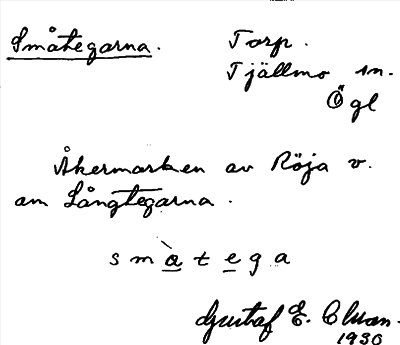 Småtegarna. Torp.
Tjällmo sn.
Ögl
Åkermarken av Röja v.
om Långtegarna.
smàtega
Gustaf E.
1930